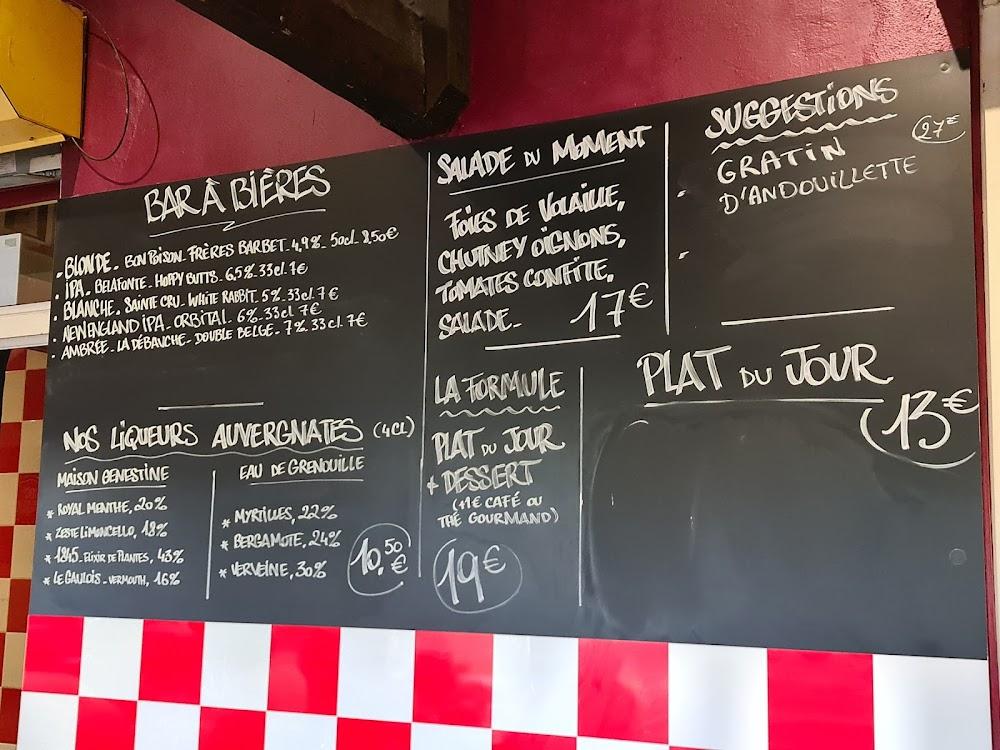 BAR À BIÈRES
- BLONDE - BON POISON - FRÈRES BARBET - 4,9% - 50cl - 8,50€
. IPA - BELAFONTE - HOPPY BUTTS - 6.5% - 33cl. 7€
. BLANCHE - SAINTE CRU - WHITE RABBIT - 5% - 33cl. 7€
. NEW ENGLAND IPA - ORBITAL - 6% - 33cl. 7€
. AMBRÉE - LA DÉBAUCHE - DOUBLE BELGE - 7% - 33cl. 7€
NOS LIQUEURS AUVERGNATES (4CL)
MAISON GENESTINE
* ROYAL MENTHE, 20%
* ZESTE LIMONCELLO, 18%
* 1845 - ELIXIR DE PLANTES, 43%
* LE GAULOIS - VERMOUTH, 16%
EAU DE GRENOUILLE
* MYRTILLES, 22%
* BERGAMOTE, 24%
* VERVEINE, 30%
10.50€
SALADE DU MOMENT
FOIES DE VOLAILLE,
CHUTNEY OIGNONS,
TOMATES CONFITE,
SALADE - 17€
LA FORMULE
PLAT DU JOUR
+ DESSERT
(+1€ CAFÉ OU
THÉ GOURMAND)
19€
SUGGESTIONS
- GRATIN 27€
D'ANDOUILLETTE
-
PLAT DU JOUR
13€